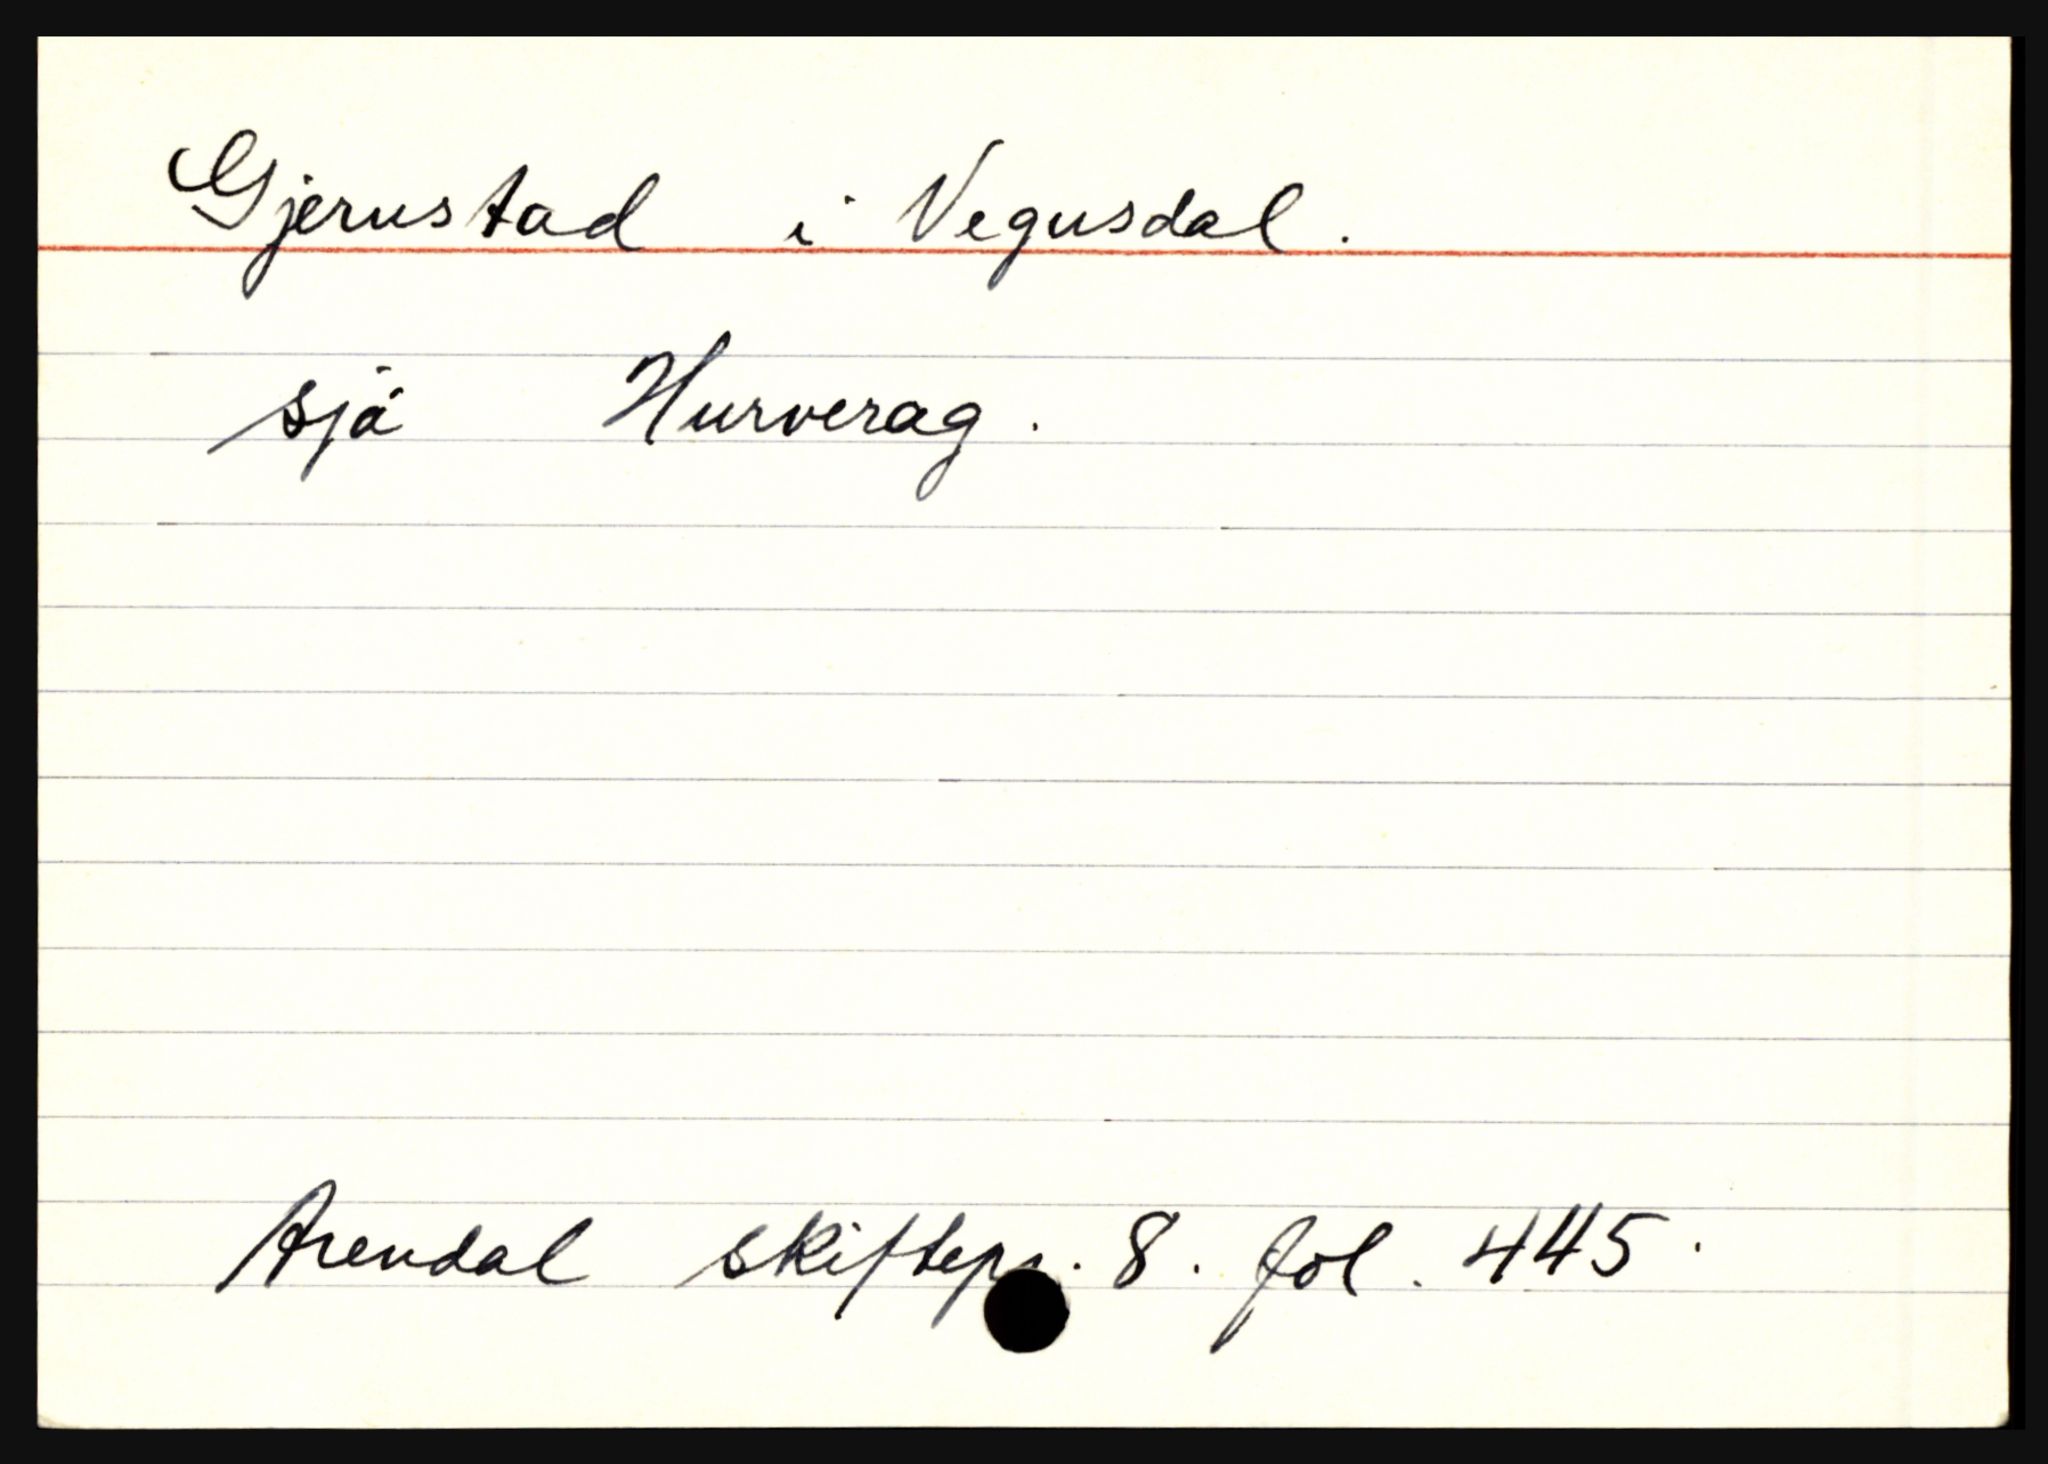 Gjerustad i Vegusdal.
sjå Hurverag.
Arendal skiftepr. 8. fol. 445.